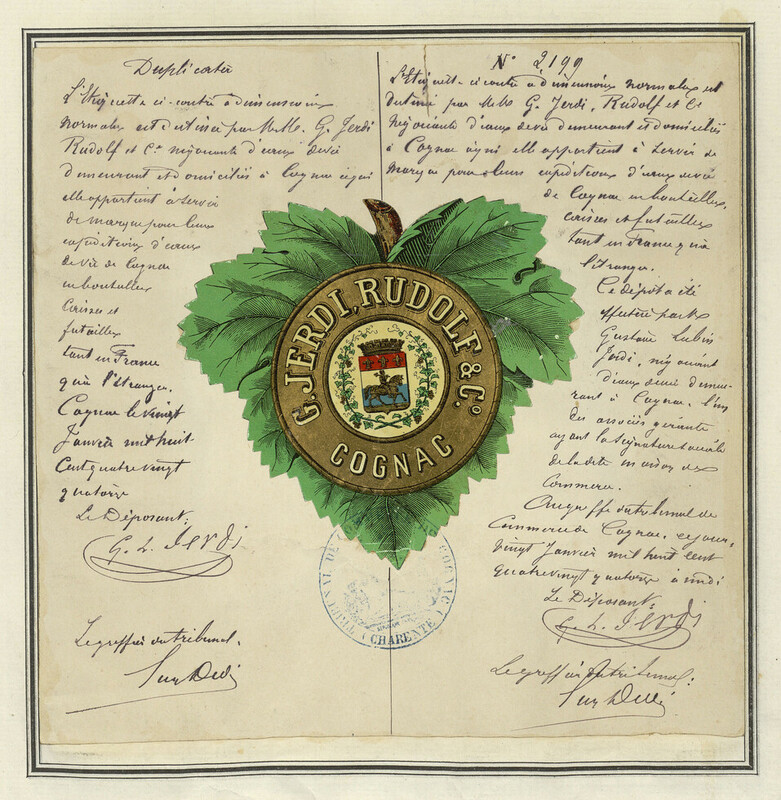 Duplicata
L'Etiquette ci-contre a dimensions
normales est destinée par M.M. G. Jerdi
Rudolf et Cie négociants d'eaux de vie
demeurant et domiciliés à Cognac à qui
elle appartient à servir
de marque pour leurs
expéditions d'eaux
de vie de Cognac
en bouteilles
Caisses et
futailles
tant en France
qu'à l'étranger.
Cognac le vingt
Janvier mil huit
Cent quatre vingt
quatorze
Le Déposant:
G. L. Jerdi
Le greffier du tribunal.
N° 2199
L'Etiquette ci contre à dimensions normales est
destinée par M.M. G. Jerdi, Rudolf et Ce
négociants d'eaux de vie demeurant et domiciliés
à Cognac à qui elle appartient à servir de
marque pour leurs expéditions d'eaux de vie
de Cognac en bouteilles,
caisses et futailles
tant en France qu'à
l'étranger.
Ce dépôt a été
effectué par
Gustave Lubin
Jerdi, négociant
d'eaux de vie demeu-
rant à Cognac. l'un
des associés gérants
ayant la signature sociale
de la dite maison de
Commerce.
Au greffe du tribunal de
Commerce de Cognac, ce jour,
vingt Janvier mil huit cent
quatre vingt quatorze à midi
Le Déposant:
G. L. Jerdi
Le greffier du tribunal:
G. JERDI, RUDOLF & Co.
COGNAC
TRIBUNAL DE COGNAC
(CHARENTE)